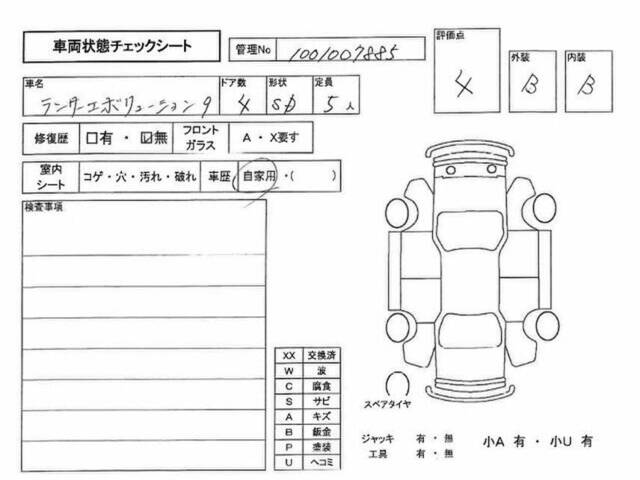 車両状態チェックシート
管理No 1001007885
評価点 4
外装 B
内装 B
車名 ランサーエボリューション9
ドア数 4
形状 SD
定員 5人
修復歴 □有 ・ ☑無
フロントガラス A ・ X要す
室内シート コゲ・穴・汚れ・破れ
車歴 自家用 ・( )
検査事項
XX 交換済
W 波
C 腐食
S サビ
A キズ
B 鈑金
P 塗装
U ヘコミ
スペアタイヤ
ジャッキ 有 ・ 無
工具 有 ・ 無
小A 有 ・ 小U 有